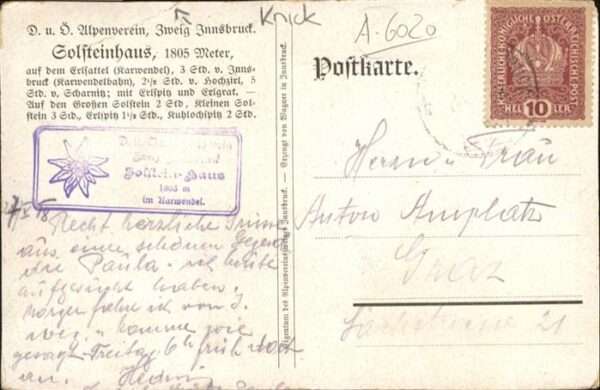 D. u. Ö. Alpenverein, Zweig Innsbruck.
Solsteinhaus, 1805 Meter,
auf dem Erlsattel (Karwendel), 3 Std. v. Inns-
bruck (Karwendelbahn), 2½ Std. v. Hochzirl, 5
Std. v. Scharnitz; mit Erlspitz und Erlgrat. —
Auf den Großen Solstein 2 Std, Kleinen Sol-
stein 3 Std., Erlspitz 1½ Std., Kuhlochspitz 2 Std.
Solstein-Haus
1805 m
im Karwendel.
Recht herzliche Grüsse
aus einer schönen Gegend
die Paula u. ich heute
aufgesucht haben.
Morgen fahre ich von I.
weg, komme wie
gesagt Freitag 6h früh dort
an. Hedwig
Eigentum des Alpenvereinszweiges Innsbruck. — Erzeugt von Wagner in Innsbruck.
Knick
A-6020
Postkarte.
KAISERLICHE KÖNIGLICHE ÖSTERREICHISCHE POST
HELLER
10
Herrn u. Frau
Anton Amplatz
Graz
21